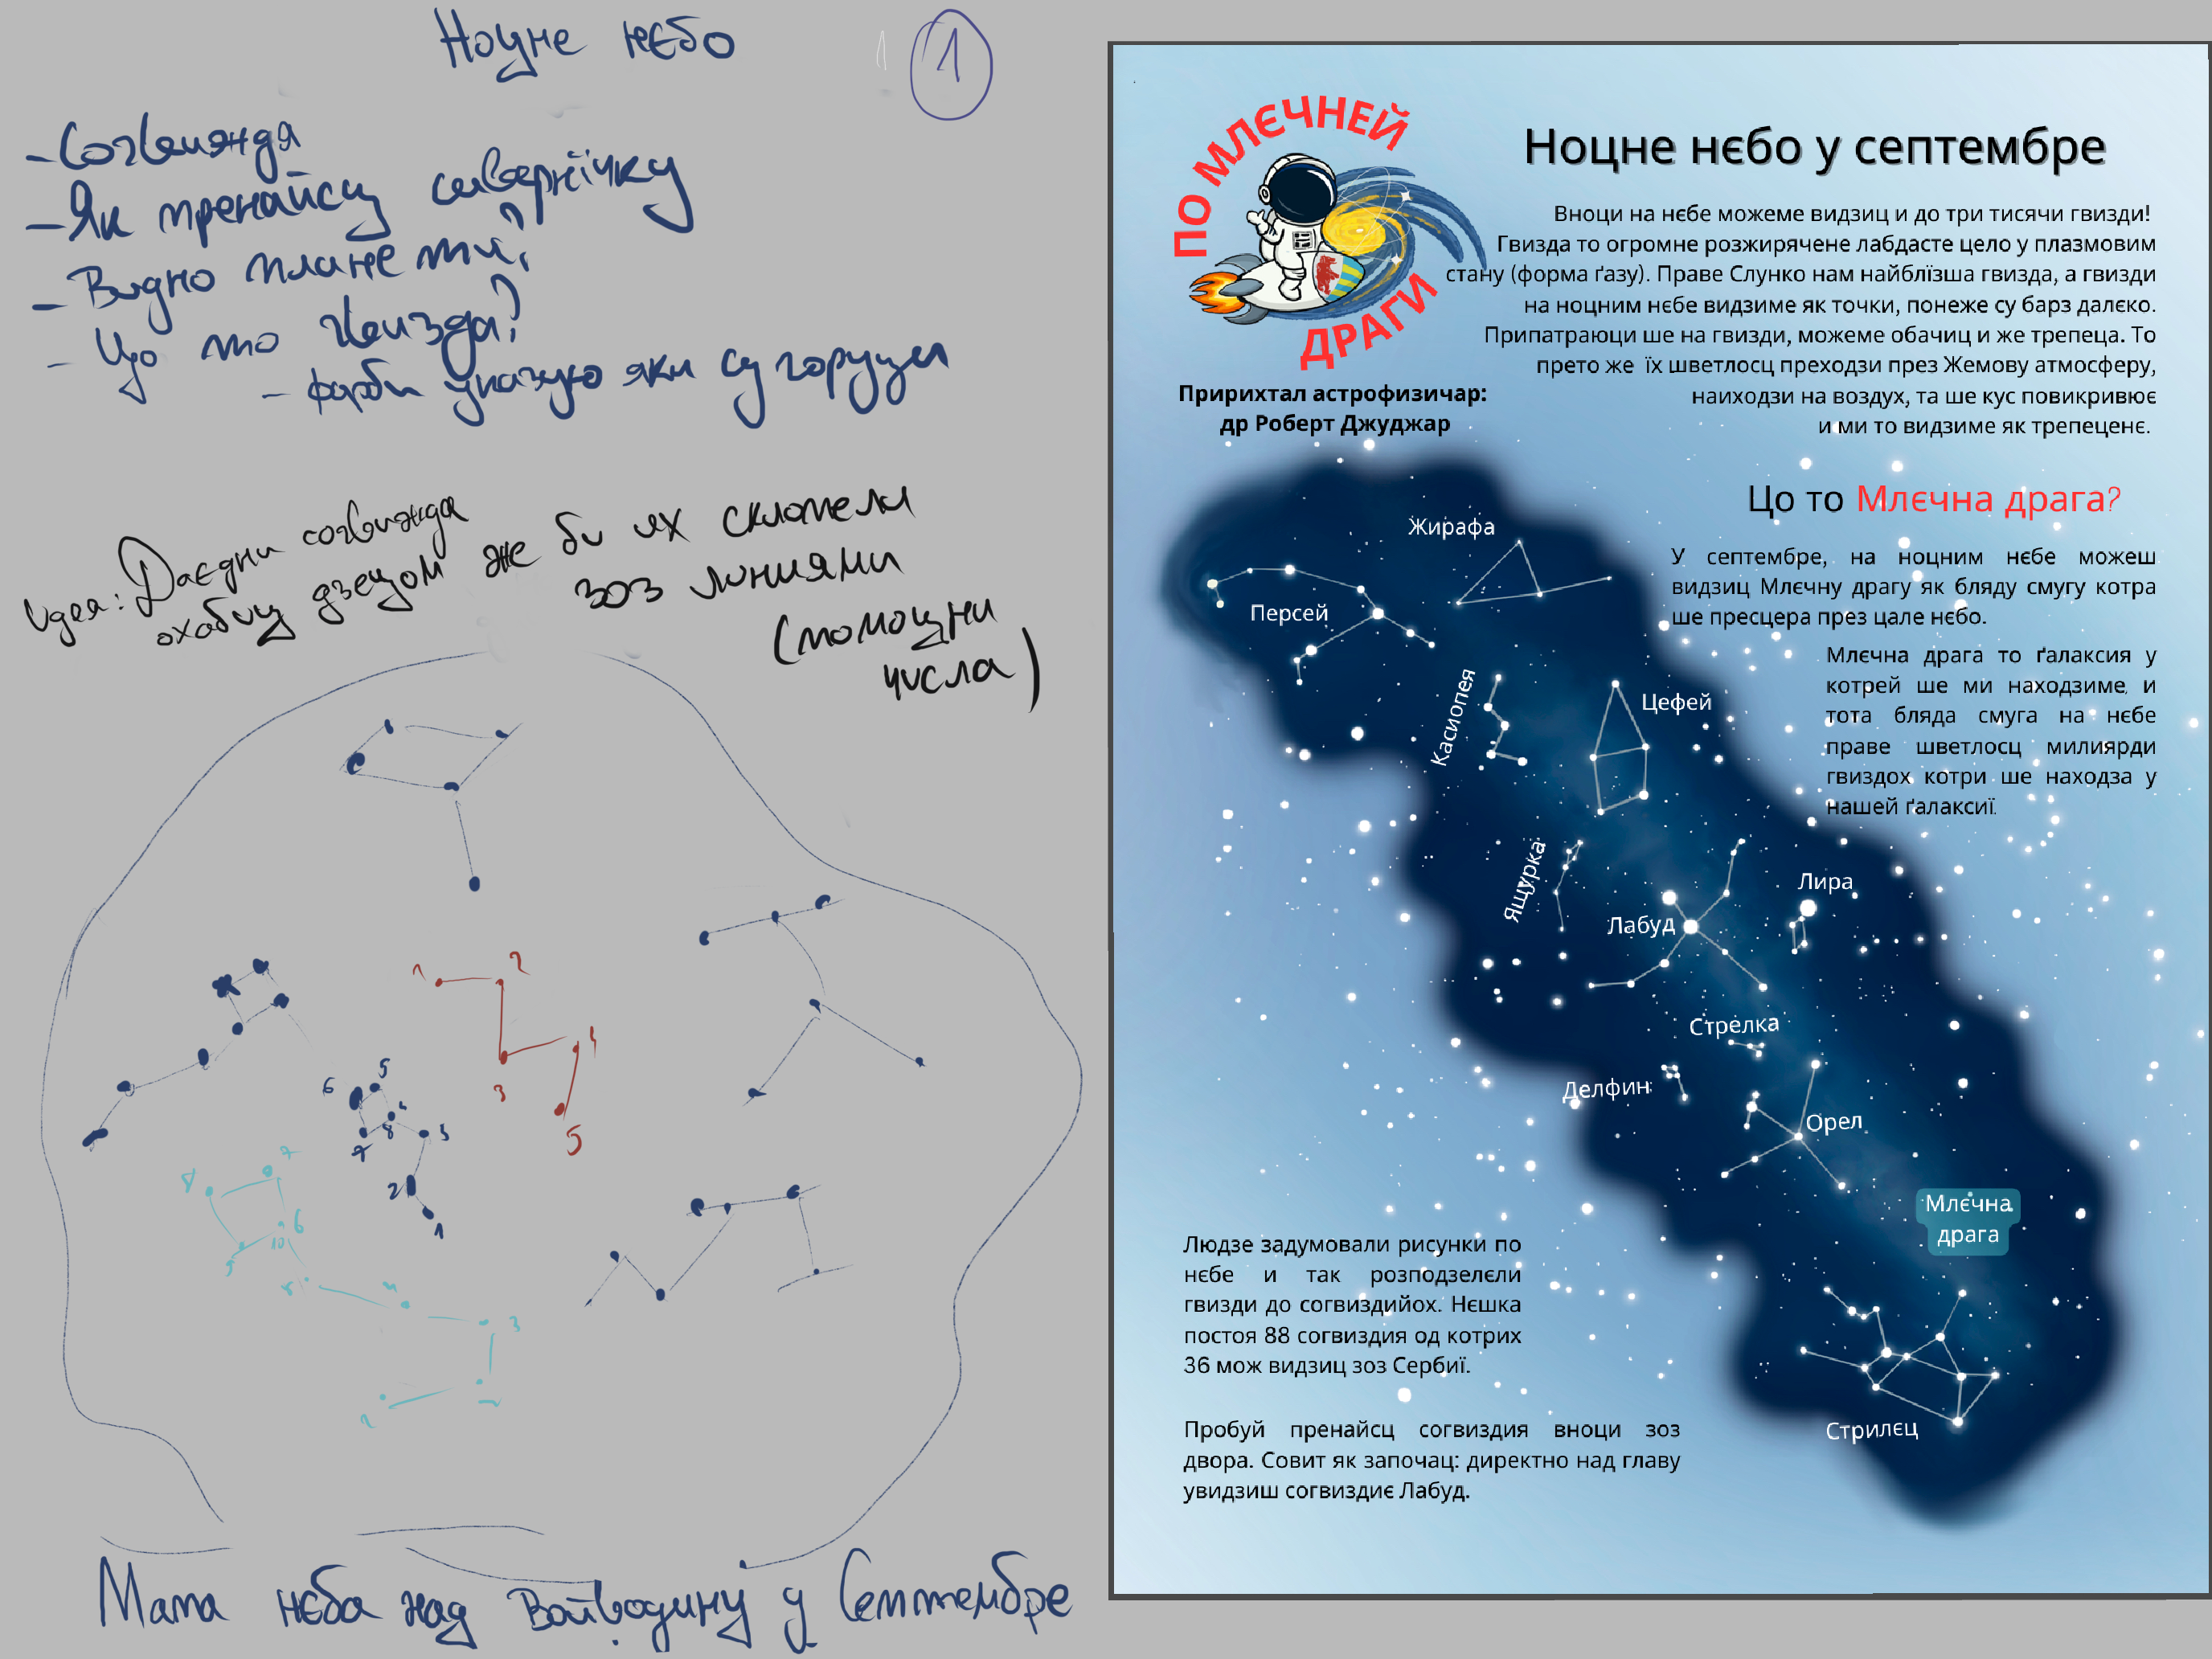 Ноцне нєбо
1
- Согвижда
- Як пренайсц сивернїчку
- Видно планети?
- Цо то гвизда?
- фарби указую яки су горуци
Идея: Даєдни согвижда
охабиц дзецом же би их склопели
зоз линиями
(помоцни
числа)
1
2
3
4
5
6
5
4
8
7
3
2
1
8
7
6
10
5
3
Мапа нєба над Войводину у Септембре
ПО МЛЄЧНЕЙ
ДРАГИ
Пририхтал астрофизичар:
др Роберт Джуджар
Ноцне нєбо у септембре
Вноци на нєбе можеме видзиц и до три тисячи гвизди!
Гвизда то огромне розжирячене лабдасте цело у плазмовим
стану (форма ґазу). Праве Слунко нам найблїзша гвизда, а гвизди
на ноцним нєбе видзиме як точки, понеже су барз далєко.
Припатраюци ше на гвизди, можеме обачиц и же трепеца. То
прето же їх шветлосц преходзи през Жемову атмосферу,
наиходзи на воздух, та ше кус повикривює
и ми то видзиме як трепеценє.
Цо то Млєчна драга?
У септембре, на ноцним нєбе можеш
видзиц Млєчну драгу як бляду смугу котра
ше пресцера през цале нєбо.
Млєчна драга то ґалаксия у
котрей ше ми находзиме, и
тота бляда смуга на нєбе
праве шветлосц милиярди
гвиздох котри ше находза у
нашей ґалаксиї.
Жирафа
Персей
Касиопея
Цефей
Ящурка
Лира
Лабуд
Стрелка
Делфин
Орел
Млєчна
драга
Стрилєц
Людзе задумовали рисунки по
нєбе и так розподзелєли
гвизди до согвиздийох. Нєшка
постоя 88 согвиздия од котрих
36 мож видзиц зоз Сербиї.
Пробуй пренайсц согвиздия вноци зоз
двора. Совит як започац: директно над главу
увидзиш согвиздиє Лабуд.